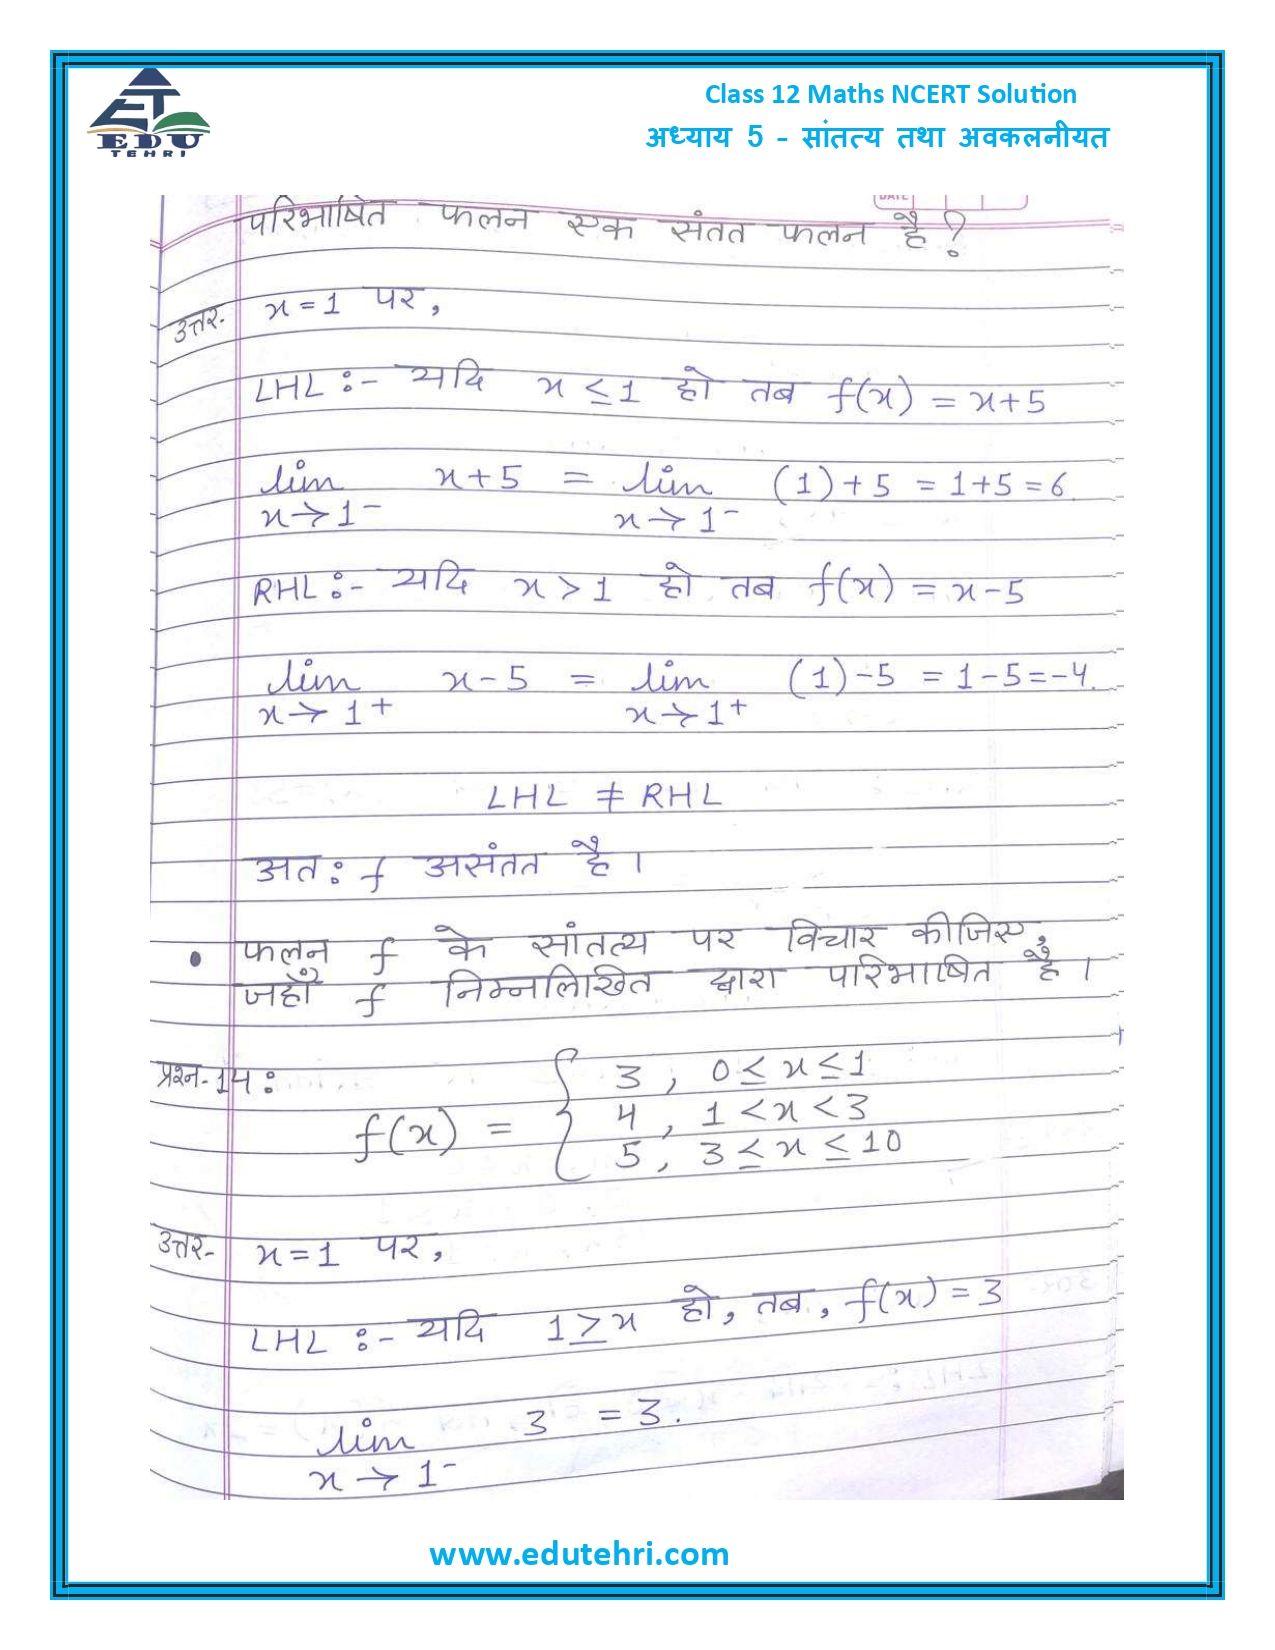 EDU
TEHRI
Class 12 Maths NCERT Solution
अध्याय 5 - सांतत्य तथा अवकलनीयत
DATE
परिभाषित फलन एक संतत फलन है?
उत्तर- x = 1 पर,
LHL :- यदि x ≤ 1 हो तब f(x) = x+5
lim x+5 = lim (1)+5 = 1+5 = 6.
x→1⁻ x→1⁻
RHL :- यदि x > 1 हो तब f(x) = x-5
lim x-5 = lim (1)-5 = 1-5 = -4.
x→1⁺ x→1⁺
LHL ≠ RHL
अत: f असंतत है।
• फलन f के सांतत्य पर विचार कीजिए,
जहाँ f निम्नलिखित द्वारा परिभाषित है।
प्रश्न-14:
3, 0 ≤ x ≤ 1
f(x) = { 4, 1 < x < 3
5, 3 ≤ x ≤ 10
उत्तर- x = 1 पर,
LHL :- यदि 1 ≥ x हो, तब, f(x) = 3
lim 3 = 3.
x→1⁻
www.edutehri.com